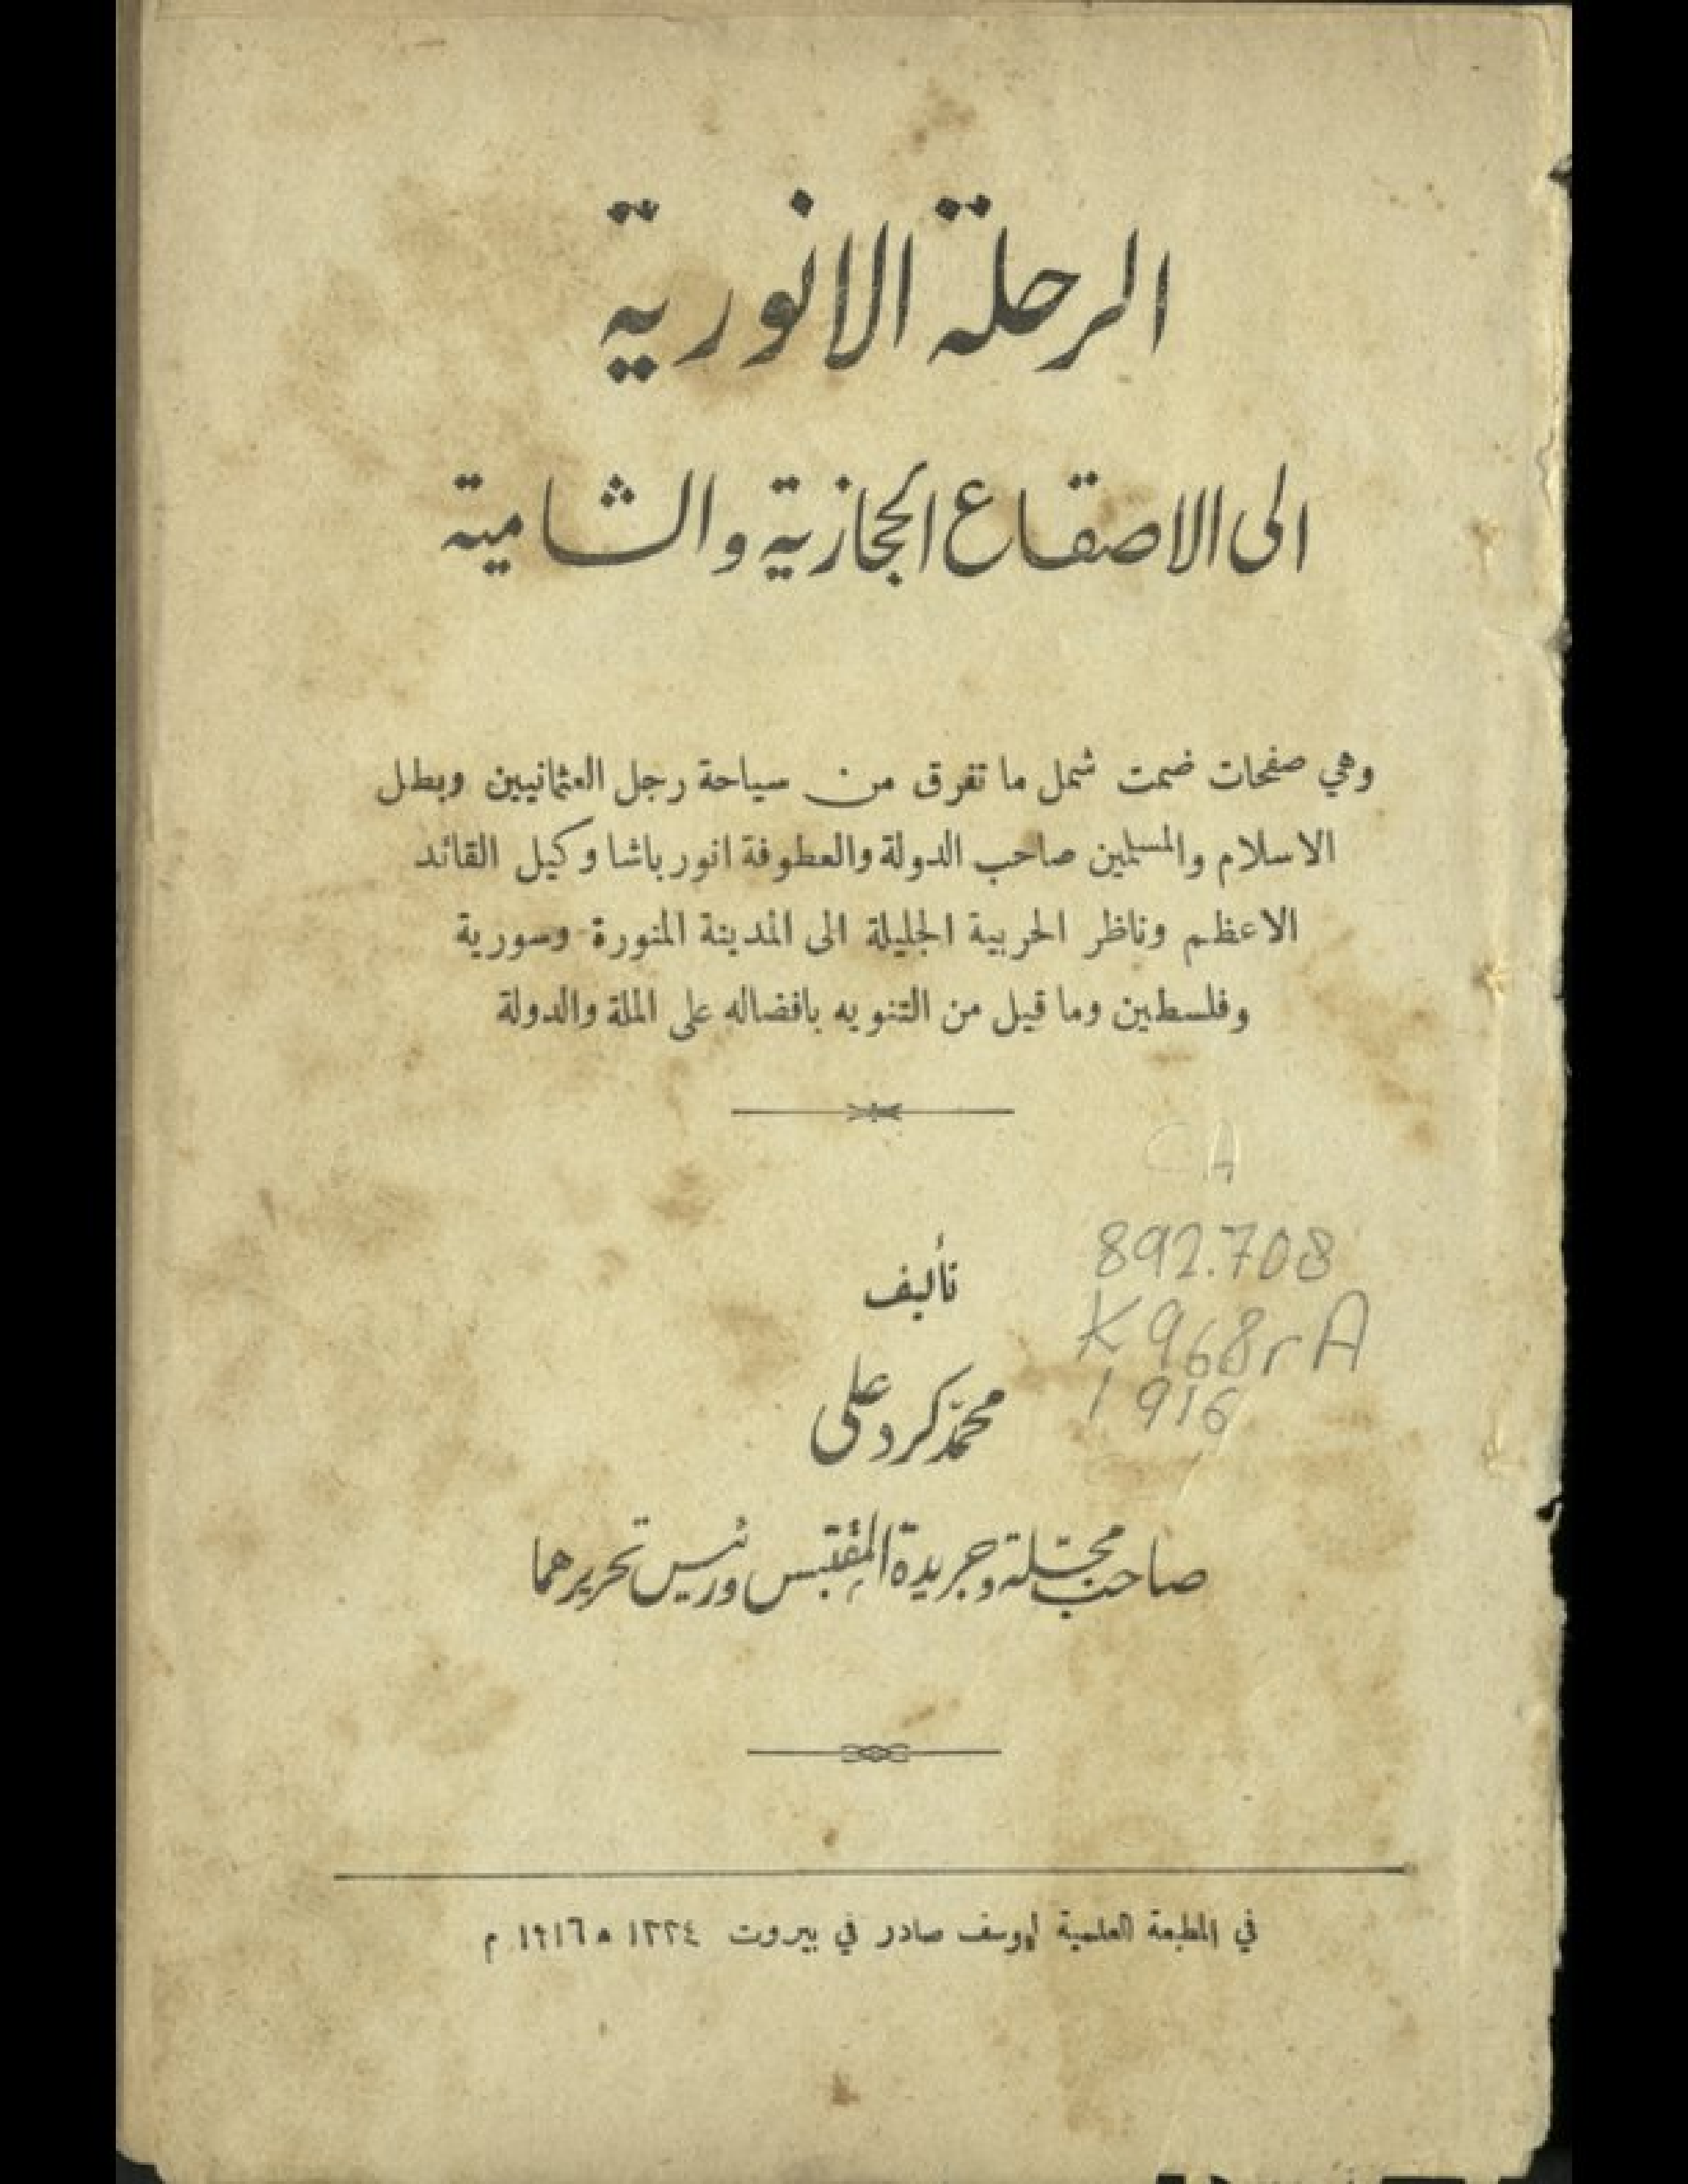 الرحلة الانورية
الى الاصقاع الحجازية والشامية
وهي صفحات ضمت شمل ما تفرق من سياحة رجل العثمانيين وبطل
الاسلام والمسلمين صاحب الدولة والعطوفة انور باشا وكيل القائد
الاعظم وناظر الحربية الجليلة الى المدينة المنورة وسورية
وفلسطين وما قيل من التنويه بافضاله على الملة والدولة
CA
892.708
K968rA
1916
تأليف
محمّد كرد علي
صاحب مجلّة وجريدة المقتبس ورئيس تحريرهما
في المطبعة العلمية ليوسف صادر في بيروت ١٣٣٤ ه ١٩١٦ م